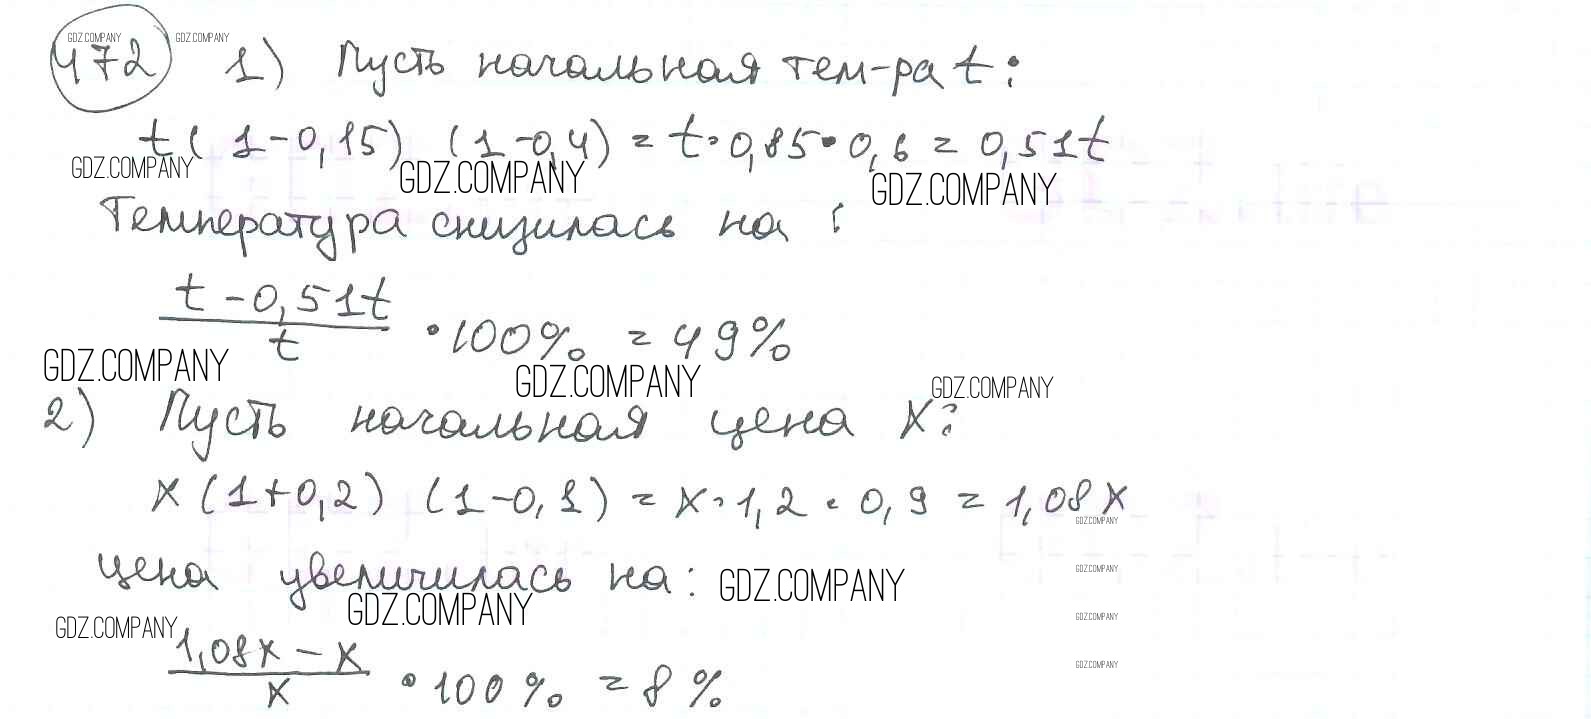 GDZ.COMPANY GDZ.COMPANY
472 1) Пусть начальная тем-ра t:
t(1-0,15) (1-0,4) = t·0,85·0,6 = 0,51t
GDZ.COMPANY GDZ.COMPANY GDZ.COMPANY
Температура снизилась на:
t-0,51t
/ t ·100% = 49%
GDZ.COMPANY GDZ.COMPANY GDZ.COMPANY
2) Пусть начальная цена x:
x(1+0,2) (1-0,1) = x·1,2·0,9 = 1,08x
GDZ.COMPANY
GDZ.COMPANY
цена увеличилась на: GDZ.COMPANY
GDZ.COMPANY GDZ.COMPANY
GDZ.COMPANY
1,08x - x
/ x ·100% = 8%
GDZ.COMPANY